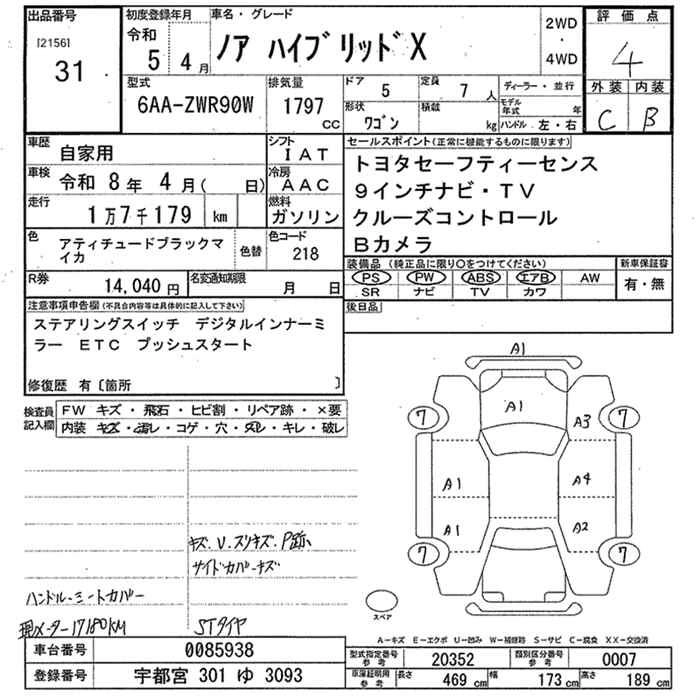 出品番号
[2156]
31
初度登録年月
令和
5 4月
車名・グレード
ノア ハイブリッドX
2WD
・
4WD
評価点
4
外装 内装
C B
型式
6AA-ZWR90W
排気量
1797
CC
ドア 5
定員 7 人
形状 ワゴン
積載 kg
ディーラー・並行
モデル年式 年
ハンドル 左・右
車歴 自家用
車検 令和 8年 4月( 日)
走行 1万7千179 km
色 アティチュードブラックマイカ
色替
シフト IAT
冷房 AAC
燃料 ガソリン
色コード 218
R券 14,040円
名変通知期限 月 日
セールスポイント(正常に機能するものに限ります)
トヨタセーフティーセンス
9インチナビ・TV
クルーズコントロール
Bカメラ
装備品 (純正品に限り○をつけてください)
PS PW ABS エアB AW
SR ナビ TV カワ
新車保証書
有・無
後日品
注意事項申告欄(不具合内容等は具体的に記入して下さい)
ステアリングスイッチ デジタルインナーミ
ラー ETC プッシュスタート
修復歴 有〔箇所 〕
検査員記入欄
FW キズ・飛石・ヒビ割・リペア跡・×要
内装 キズ・汚レ・コゲ・穴・スレ・キレ・破レ
キズ.V.スリキズ.P跡
サイドカバーキズ
ハンドル・シートカバー
現メーター17180KM
STタイヤ
A1
A1
7 A3 7
A1 A4
A1 A2
7 7
スペア
A-キズ E-エクボ U-凹み W-補修跡 S-サビ C-腐食 XX-交換済
車台番号 0085938
登録番号 宇都宮 301 ゆ 3093
型式指定番号 参考 20352
類別区分番号 参考 0007
車庫証明用 参考 長さ 469 cm 幅 173 cm 高さ 189 cm